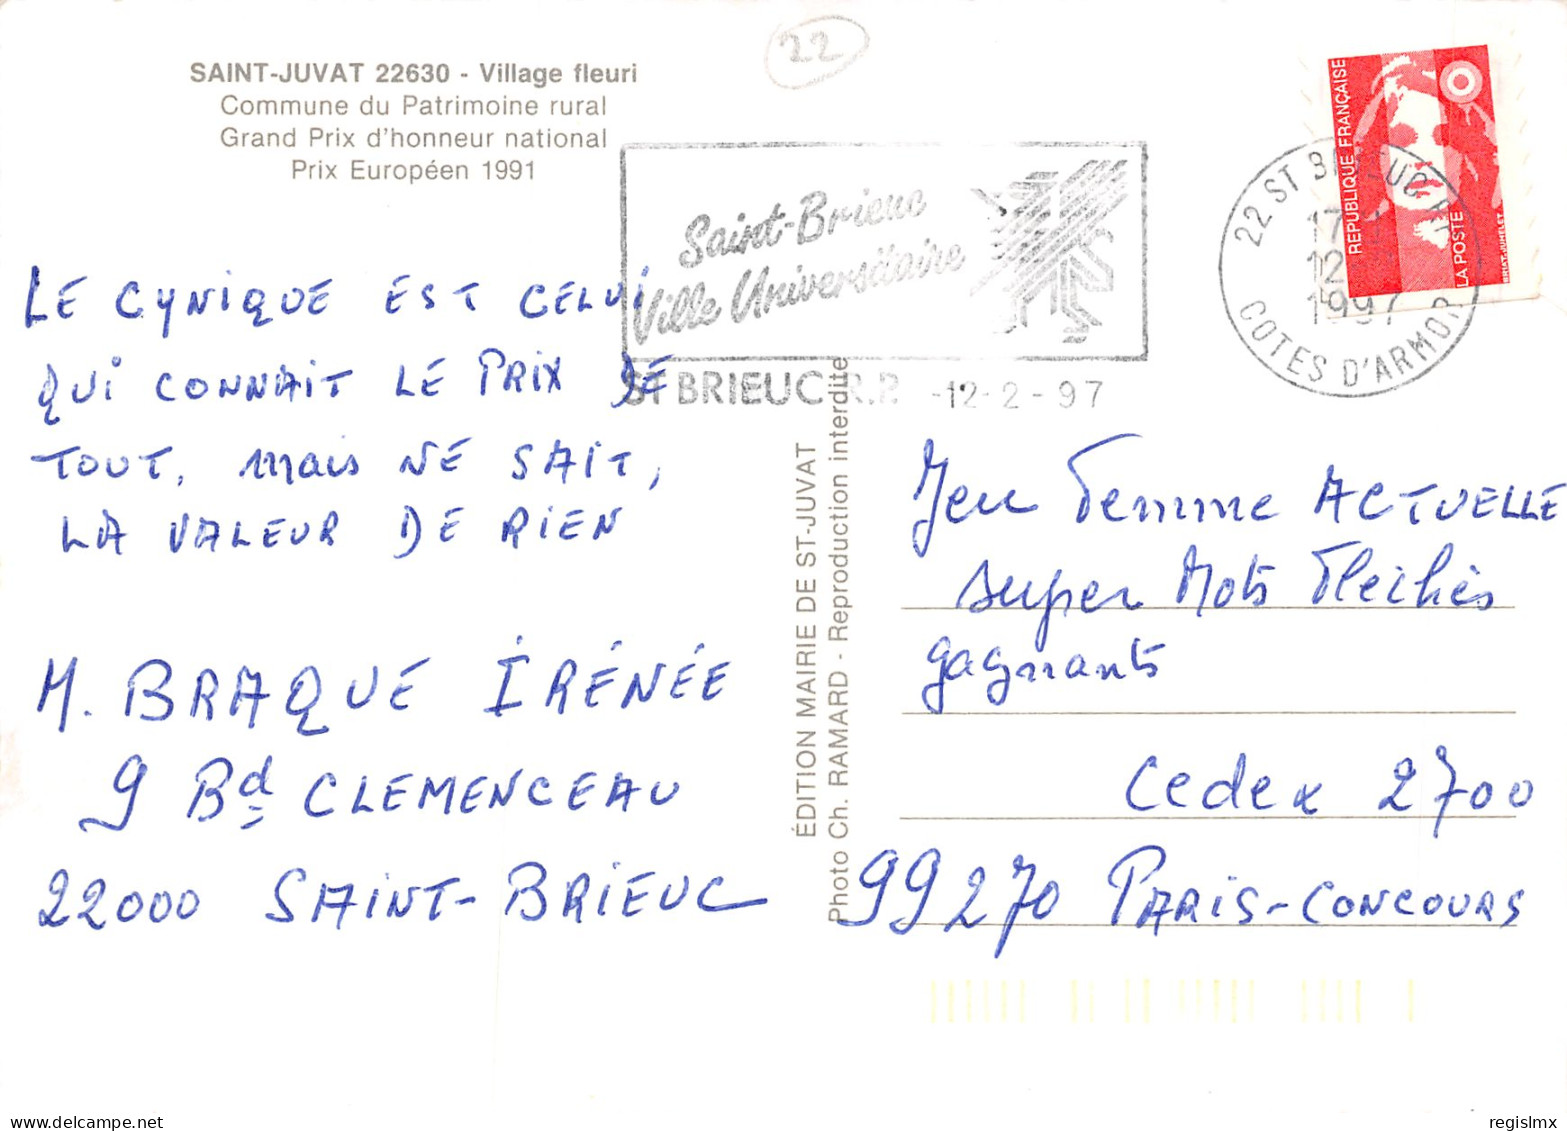 22
SAINT-JUVAT 22630 - Village fleuri
Commune du Patrimoine rural
Grand Prix d'honneur national
Prix Européen 1991
Saint-Brieuc
Ville Universitaire
ST BRIEUC R.P. -12-2-97
22 ST BRIEUC
12
1997
COTES D'ARMOR
REPUBLIQUE FRANÇAISE
LA POSTE
BRIAT-JUMELET
LE CYNIQUE EST CELUI
QUI CONNAIT LE PRIX DE
TOUT, mais NE SAIT,
LA VALEUR DE RIEN
M. BRAQUE IRÉNÉE
9 Bd CLEMENCEAU
22000 SAINT-BRIEUC
ÉDITION MAIRIE DE ST-JUVAT
Photo Ch. RAMARD - Reproduction interdite
Jeu Femme ACTUELLE
super Mots Fléchés
gagnants
Cedex 2700
99270 PARIS-CONCOURS
Delcampe.net
regislmx